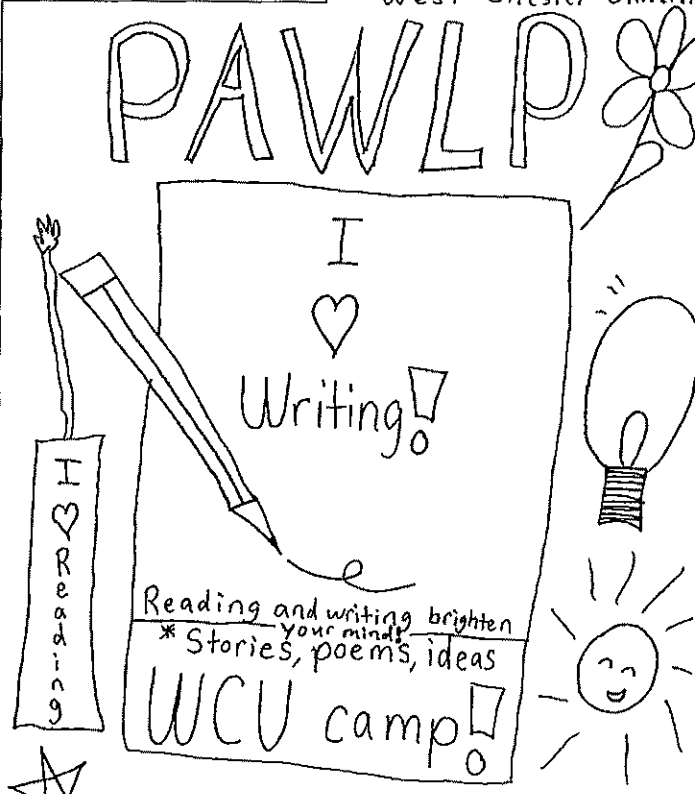 West Chester
PAWLP
I
♡
Writing!
I ♡ Reading
Reading and writing brighten
your mind!
* Stories, poems, ideas
WCU camp!